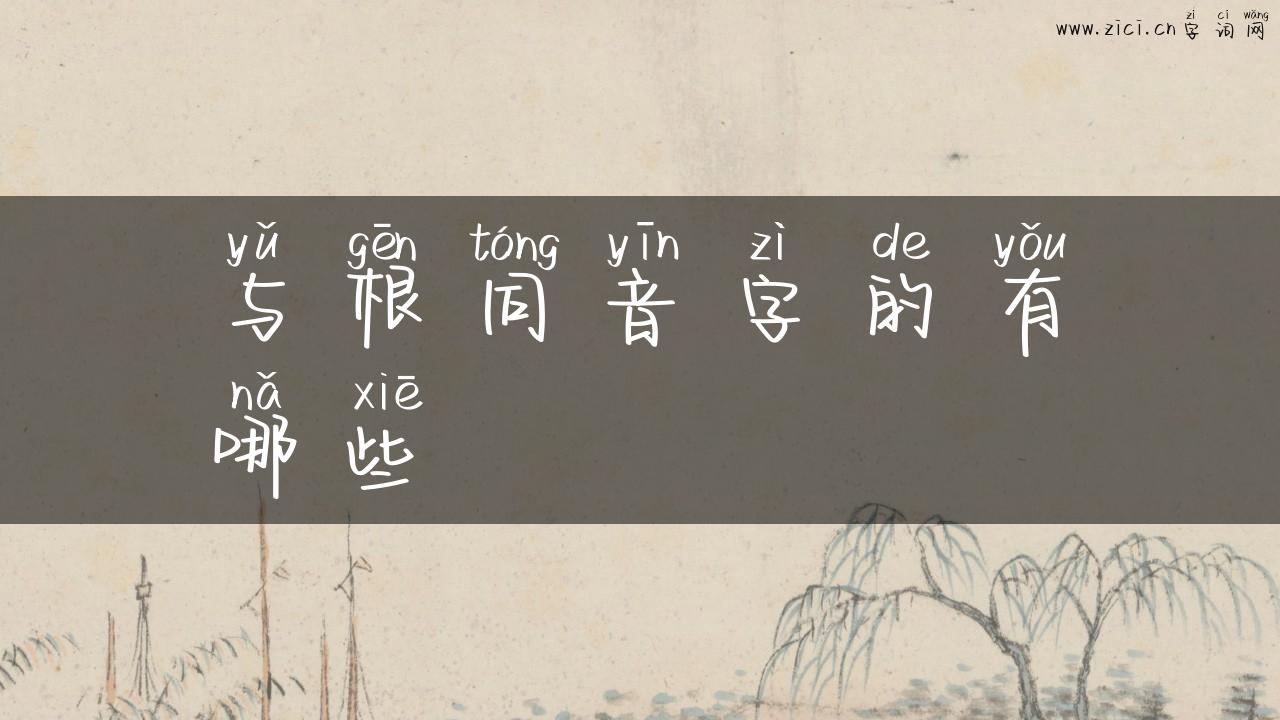 zì cí wǎng
www.zici.cn 字 词 网
yǔ gēn tóng yīn zì de yǒu
与 根 同 音 字 的 有
nǎ xiē
哪 些